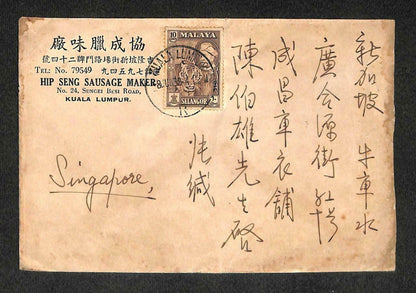 協成臘味廠
吉隆坡新街場路門牌二十四號
電話七九五四九
TEL: No. 79549
HIP SENG SAUSAGE MAKER
No. 24, SUNGEI BESI ROAD,
KUALA LUMPUR.
MALAYA
10
SELANGOR
KUALA LUMPUR
新加坡 牛車水
廣合源街
成昌車衣舖
陳伯雄先生啓
緘
Singapore,